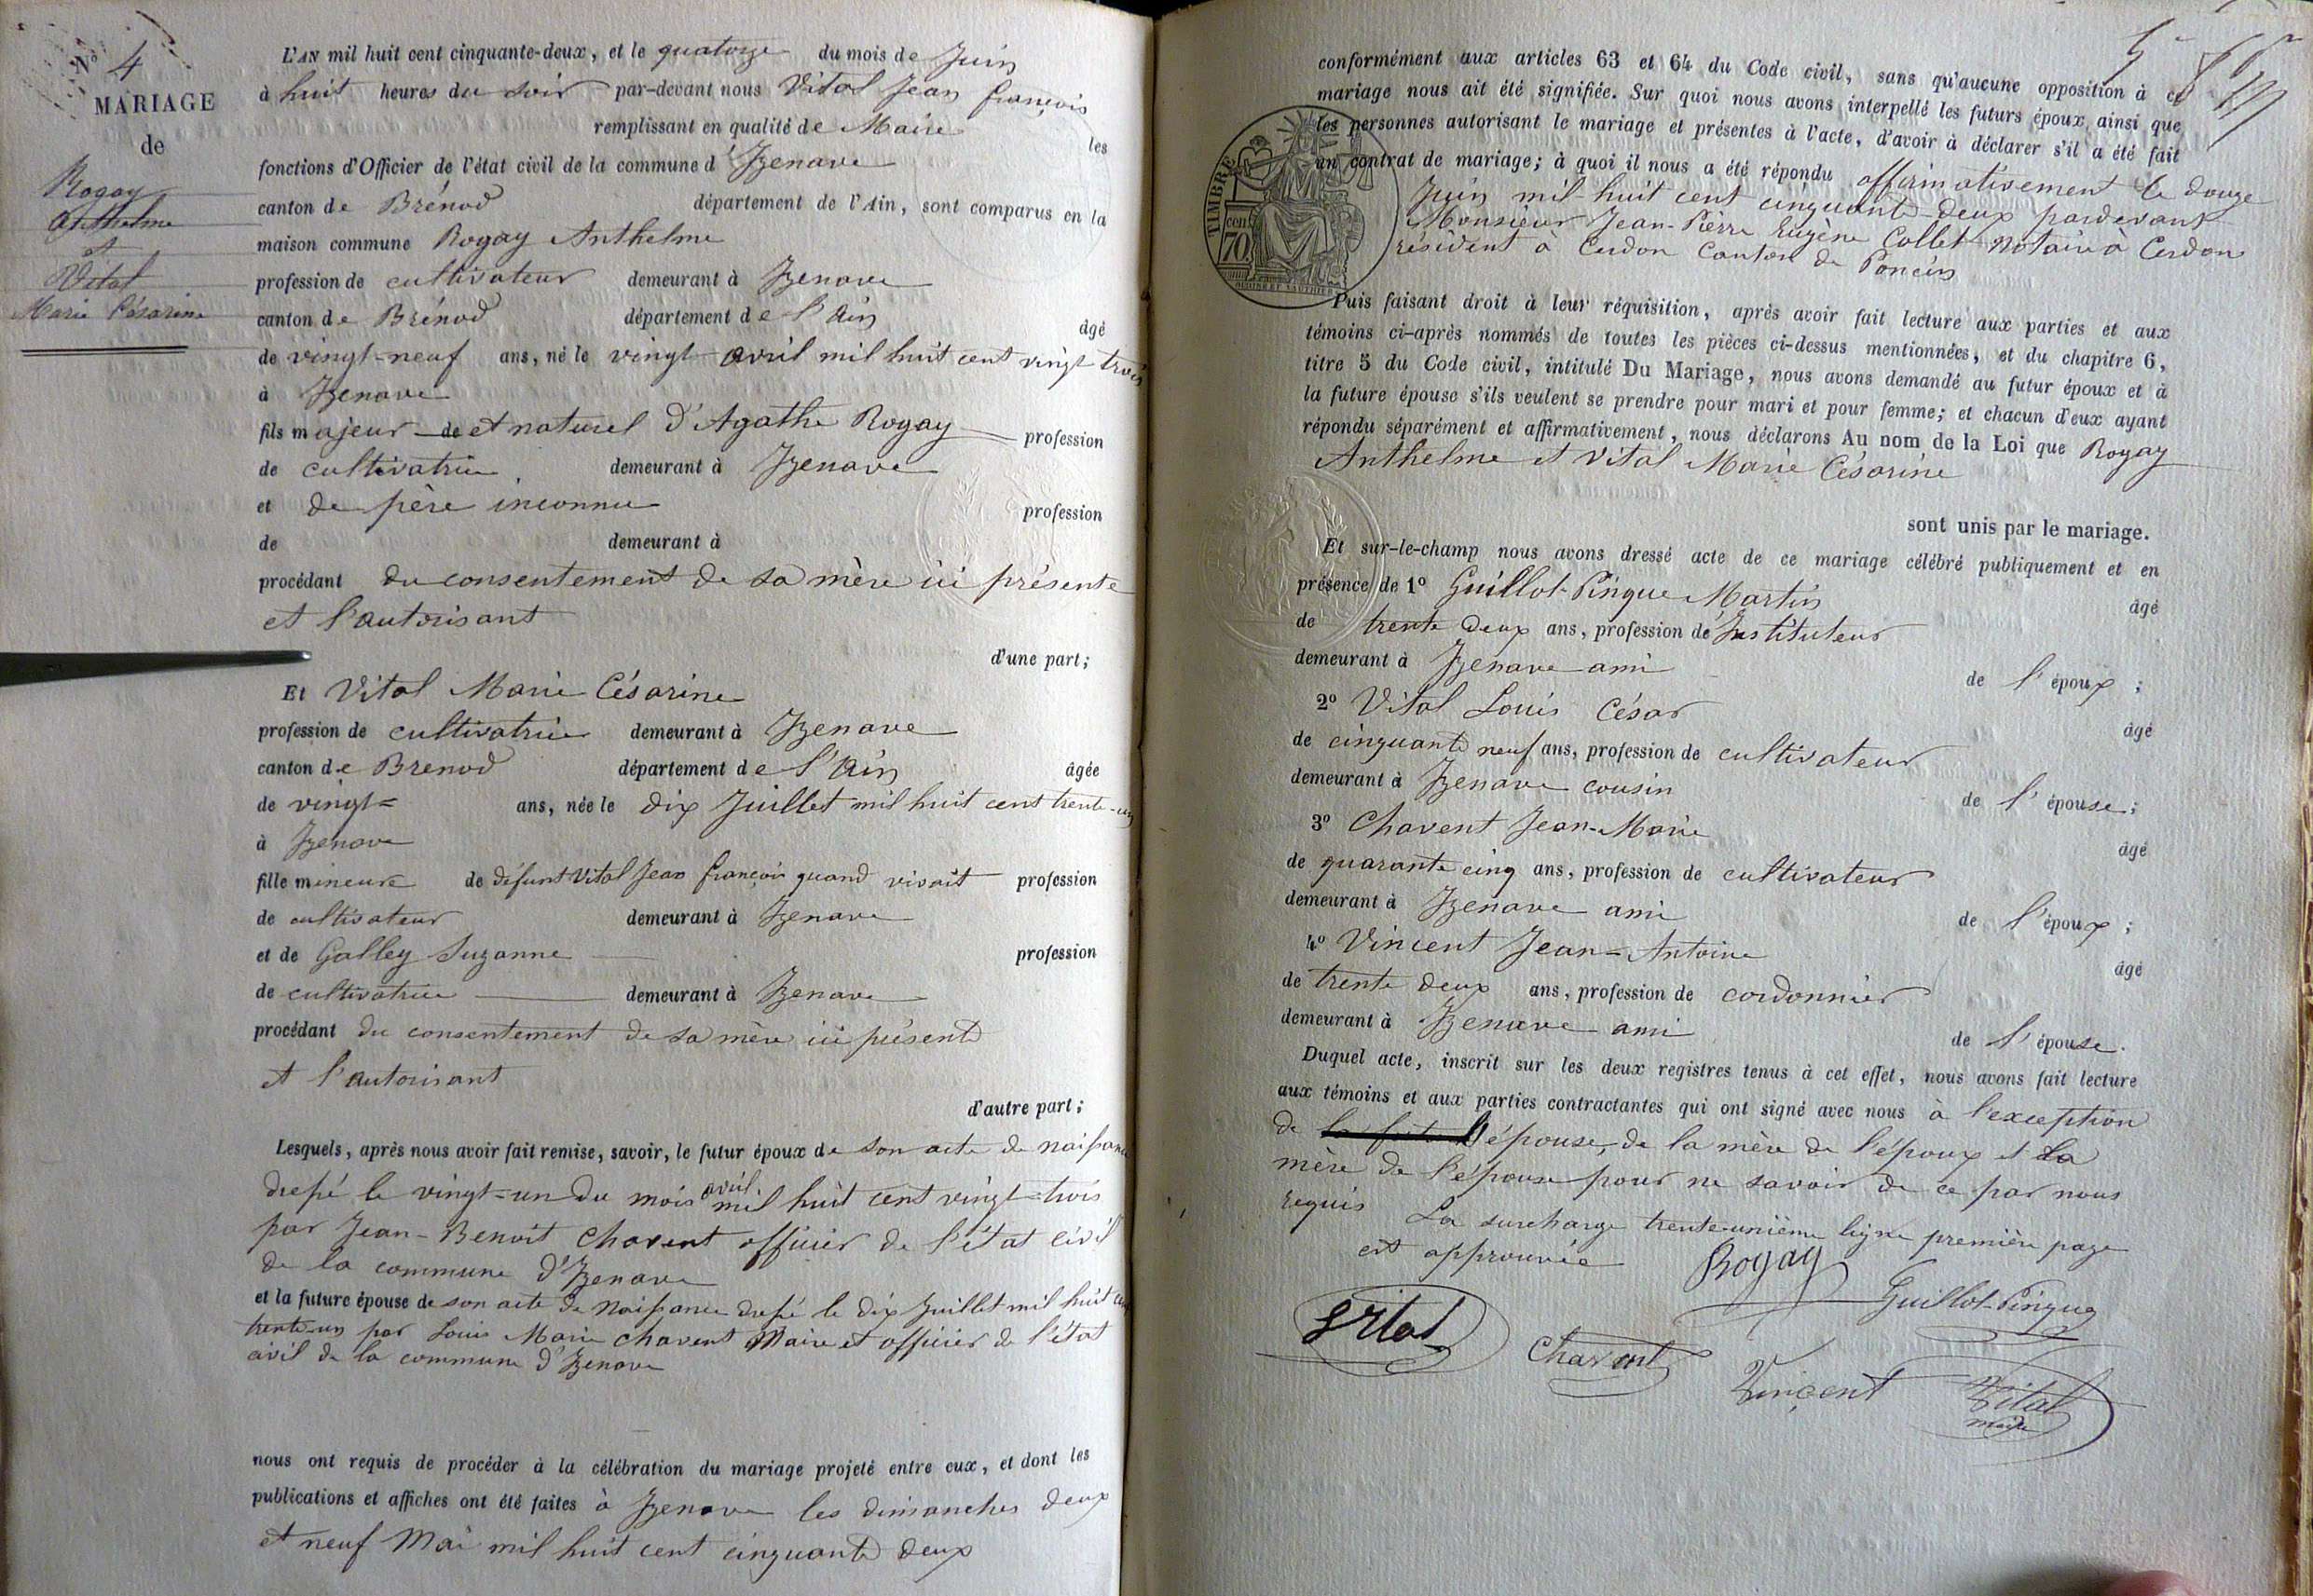 Nº 4
MARIAGE
de
Rogay
Anthelme
et
Vital
Marie Césarine
L'AN mil huit cent cinquante-deux, et le quatorze du mois de Juin
à huit heures du soir par-devant nous Vital Jean françois
remplissant en qualité de Maire les
fonctions d'Officier de l'état civil de la commune d'Izenave
canton de Brénod département de l'Ain, sont comparus en la
maison commune Rogay Anthelme
profession de cultivateur demeurant à Izenave
canton de Brénod département de l'Ain âgé
de vingt-neuf ans, né le vingt avril mil huit cent vingt trois
à Izenave
fils majeur de et naturel d'Agathe Rogay profession
de cultivatrice demeurant à Izenave
et de père inconnu profession
de demeurant à
procédant du consentement de sa mère ici présente
et l'autorisant
d'une part;
Et Vital Marie Césarine
profession de cultivatrice demeurant à Izenave
canton de Brénod département de l'Ain âgée
de vingt= ans, née le dix Juillet mil huit cent trente-un
à Izenave
fille mineure de défunt Vital Jean françois quand vivait profession
de cultivateur demeurant à Izenave
et de Galley Suzanne profession
de cultivatrice demeurant à Izenave
procédant du consentement de sa mère ici présente
et l'autorisant
d'autre part;
Lesquels, après nous avoir fait remise, savoir, le futur époux de son acte de naissance
dressé le vingt=un du mois avril mil huit cent vingt=trois
par Jean-Benoit Chavent officier de l'état civil
de la commune d'Izenave
et la future épouse de son acte de naissance dressé le dix Juillet mil huit cent
trente-un par Louis Marie Chavent Maire et officier de l'état
civil de la commune d'Izenave
nous ont requis de procéder à la célébration du mariage projeté entre eux, et dont les
publications et affiches ont été faites à Izenave les dimanches deux
et neuf Mai mil huit cent cinquante deux
conformément aux articles 63 et 64 du Code civil, sans qu'aucune opposition à ce
mariage nous ait été signifiée. Sur quoi nous avons interpellé les futurs époux, ainsi que
les personnes autorisant le mariage et présentes à l'acte, d'avoir à déclarer s'il a été fait
un contrat de mariage; à quoi il nous a été répondu affirmativement le douze
Juin mil-huit cent cinquante-deux pardevant
Monsieur Jean-Pierre Eugène Collet notaire à Cerdon
résident à Cerdon Canton de Poncin
TIMBRE
cen
70
Puis faisant droit à leur réquisition, après avoir fait lecture aux parties et aux
témoins ci-après nommés de toutes les pièces ci-dessus mentionnées, et du chapitre 6,
titre 5 du Code civil, intitulé Du Mariage, nous avons demandé au futur époux et à
la future épouse s'ils veulent se prendre pour mari et pour femme; et chacun d'eux ayant
répondu séparément et affirmativement, nous déclarons Au nom de la Loi que Rogay
Anthelme et Vital Marie Césarine
sont unis par le mariage.
Et sur-le-champ nous avons dressé acte de ce mariage célébré publiquement et en
présence de 1º Guillot-Pingue Martin âgé
de trente deux ans, profession de Instituteur
demeurant à Izenave ami de l'époux;
2º Vital Louis César âgé
de cinquante neuf ans, profession de cultivateur
demeurant à Izenave cousin de l'épouse;
3º Chavent Jean-Marie âgé
de quarante cinq ans, profession de cultivateur
demeurant à Izenave ami de l'époux;
4º Vincent Jean=Antoine âgé
de trente deux ans, profession de cordonnier
demeurant à Izenave ami de l'épouse.
Duquel acte, inscrit sur les deux registres tenus à cet effet, nous avons fait lecture
aux témoins et aux parties contractantes qui ont signé avec nous à l'exception
de l'épouse, de la mère de l'époux et la
mère de l'épouse pour ne savoir de ce par nous
requis La surcharge trente-unième ligne première page
est approuvée Rogay
Guillot-Pingue
Vital
Chavent
Vincent
Vital
maire